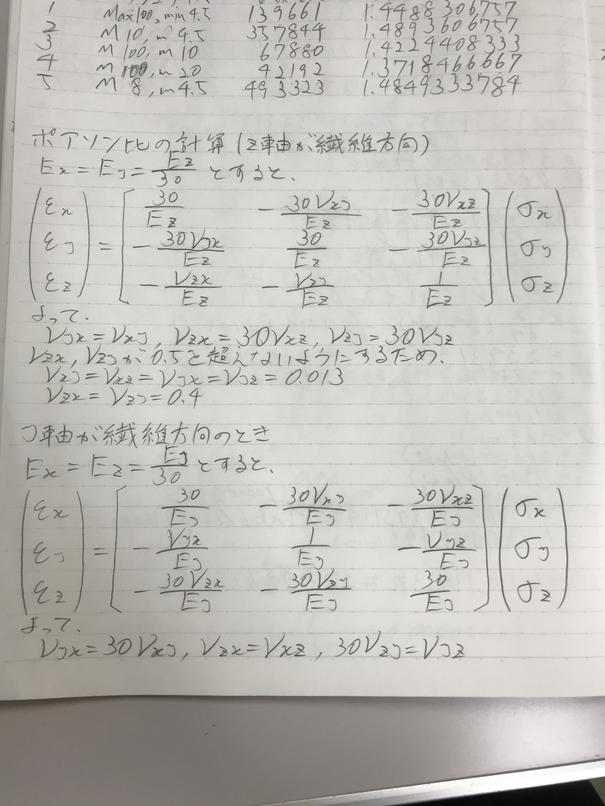 1 Max100, min 4.5 139661 1.4488306757
2 M 10, m 4.5 357844 1.4893606757
3 M 100, m 10 67880 1.4224408333
4 M 100, m 20 42192 1.3718466667
5 M 8, m 4.5 493323 1.4849333784
ポアソン比の計算(z軸が繊維方向)
Ex = Ey = Ez/30 とすると、
(εx) = [30/Ez -30νxy/Ez -30νxz/Ez] (σx)
(εy) [-30νyx/Ez 30/Ez -30νyz/Ez] (σy)
(εz) [-νzx/Ez -νzy/Ez 1/Ez] (σz)
よって、
νyx = νxy, νzx = 30νxz, νzy = 30νyz
νzx, νzyが0.5を超えないようにするため、
νxy = νxz = νyx = νyz = 0.013
νzx = νzy = 0.4
y軸が繊維方向のとき
Ex = Ez = Ey/30 とすると、
(εx) = [30/Ey -30νxy/Ey -30νxz/Ey] (σx)
(εy) [-νyx/Ey 1/Ey -νyz/Ey] (σy)
(εz) [-30νzx/Ey -30νzy/Ey 30/Ey] (σz)
よって、
νyx = 30νxy, νzx = νxz, 30νzy = νyz